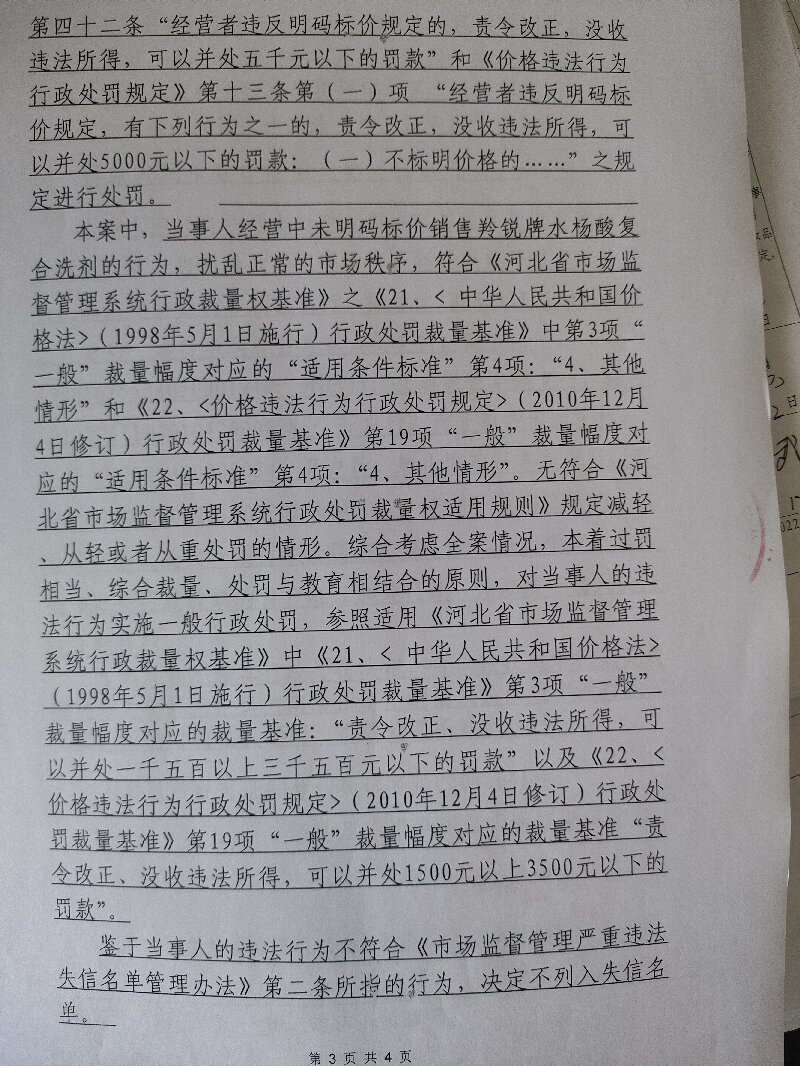 第四十二条“经营者违反明码标价规定的，责令改正，没收
违法所得，可以并处五千元以下的罚款”和《价格违法行为
行政处罚规定》第十三条第（一）项 “经营者违反明码标
价规定，有下列行为之一的，责令改正，没收违法所得，可
以并处5000元以下的罚款：（一）不标明价格的……”之规
定进行处罚。
本案中，当事人经营中未明码标价销售羚锐牌水杨酸复
合洗剂的行为，扰乱正常的市场秩序，符合《河北省市场监
督管理系统行政裁量权基准》之《21、< 中华人民共和国价
格法>（1998年5月1日施行）行政处罚裁量基准》中第3项“
一般”裁量幅度对应的“适用条件标准”第4项：“4、其他
情形”和《22、<价格违法行为行政处罚规定>（2010年12月
4日修订）行政处罚裁量基准》第19项“一般”裁量幅度对
应的“适用条件标准”第4项：“4、其他情形”。无符合《河
北省市场监督管理系统行政处罚裁量权适用规则》规定减轻
、从轻或者从重处罚的情形。综合考虑全案情况，本着过罚
相当、综合裁量、处罚与教育相结合的原则，对当事人的违
法行为实施一般行政处罚，参照适用《河北省市场监督管理
系统行政裁量权基准》中《21、< 中华人民共和国价格法>
（1998年5月1日施行）行政处罚裁量基准》第3项“一般”
裁量幅度对应的裁量基准：“责令改正、没收违法所得，可
以并处一千五百以上三千五百元以下的罚款”以及《22、<
价格违法行为行政处罚规定>（2010年12月4日修订）行政处
罚裁量基准》第19项“一般”裁量幅度对应的裁量基准“责
令改正、没收违法所得，可以并处1500元以上3500元以下的
罚款”。
鉴于当事人的违法行为不符合《市场监督管理严重违法
失信名单管理办法》第二条所指的行为，决定不列入失信名
单。
第 3 页 共 4 页